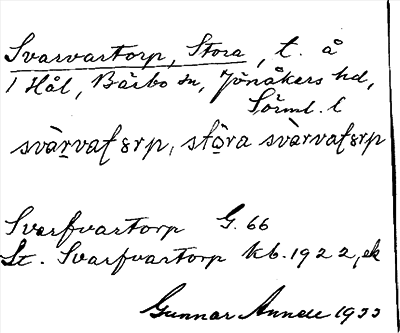 Svarvartorp, Stora, t. å
1 Hål, Bärbo sn, Jönåkers hd,
Sörml. l
svàrvatsrp, störa svàrvatsrp
Svarfvartorp G. 66
St. Svarfvartorp kb. 1922, ek
Gunnar Annell 1933